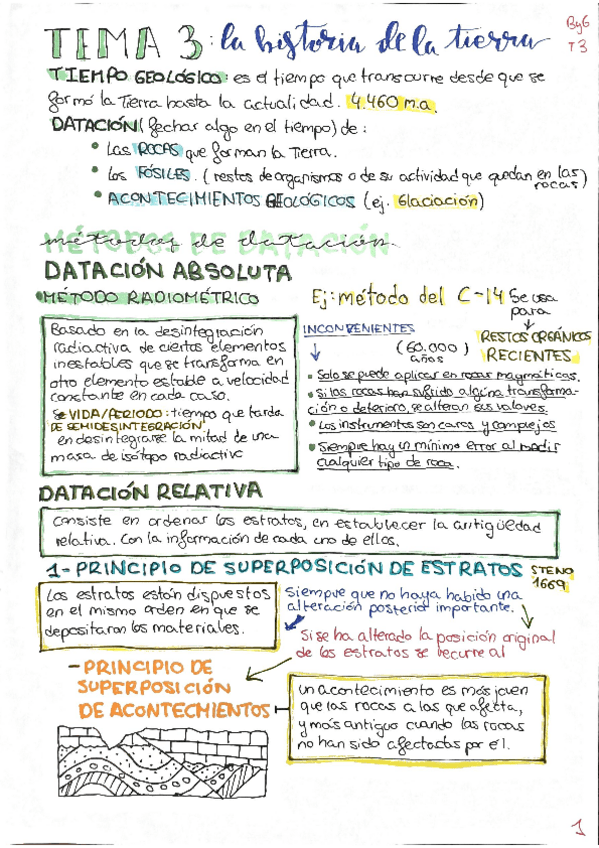 TEMA 3: la historia de la tierra
ByG
T3
TIEMPO GEOLÓGICO: es el tiempo que transcurre desde que se
formó la Tierra hasta la actualidad. 4.460 m.a.
DATACIÓN (fechar algo en el tiempo) de:
• Las ROCAS que forman la Tierra.
• Los FÓSILES. (restos de organismos o de su actividad que quedan en las rocas)
• ACONTECIMIENTOS GEOLÓGICOS (ej. Glaciación)
métodos de datación.
MÉTODOS DE DATACIÓN
DATACIÓN ABSOLUTA
• MÉTODO RADIOMÉTRICO
Basado en la desintegración
radiactiva de ciertos elementos
inestables que se transforma en
otro elemento estable a velocidad
constante en cada caso.
Se VIDA/PERIODO: tiempo que tarda
DE SEMIDESINTEGRACIÓN
en desintegrarse la mitad de una
masa de isótopo radiactivo
Ej: método del C-14 Se usa
para
RESTOS ORGÁNICOS
RECIENTES
(60.000)
años
INCONVENIENTES
• Solo se puede aplicar en rocas magmáticas.
• Si las rocas han sufrido alguna transforma-
ción o deterioro, se alteran sus valores.
• Los instrumentos son caros y complejos
• Siempre hay un mínimo error al medir
cualquier tipo de roca.
DATACIÓN RELATIVA
Consiste en ordenar los estratos, en establecer la antigüedad
relativa. Con la información de cada uno de ellos.
1- PRINCIPIO DE SUPERPOSICIÓN DE ESTRATOS STENO
1669
Los estratos están dispuestos
en el mismo orden en que se
depositaron los materiales.
Siempre que no haya habido una
alteración posterior importante.
Si se ha alterado la posición original
de los estratos se recurre al
- PRINCIPIO DE
SUPERPOSICIÓN
DE ACONTECMIENTOS
un acontecimiento es más joven
que las rocas a las que afecta,
y más antiguo cuando las rocas
no han sido afectadas por él.
1